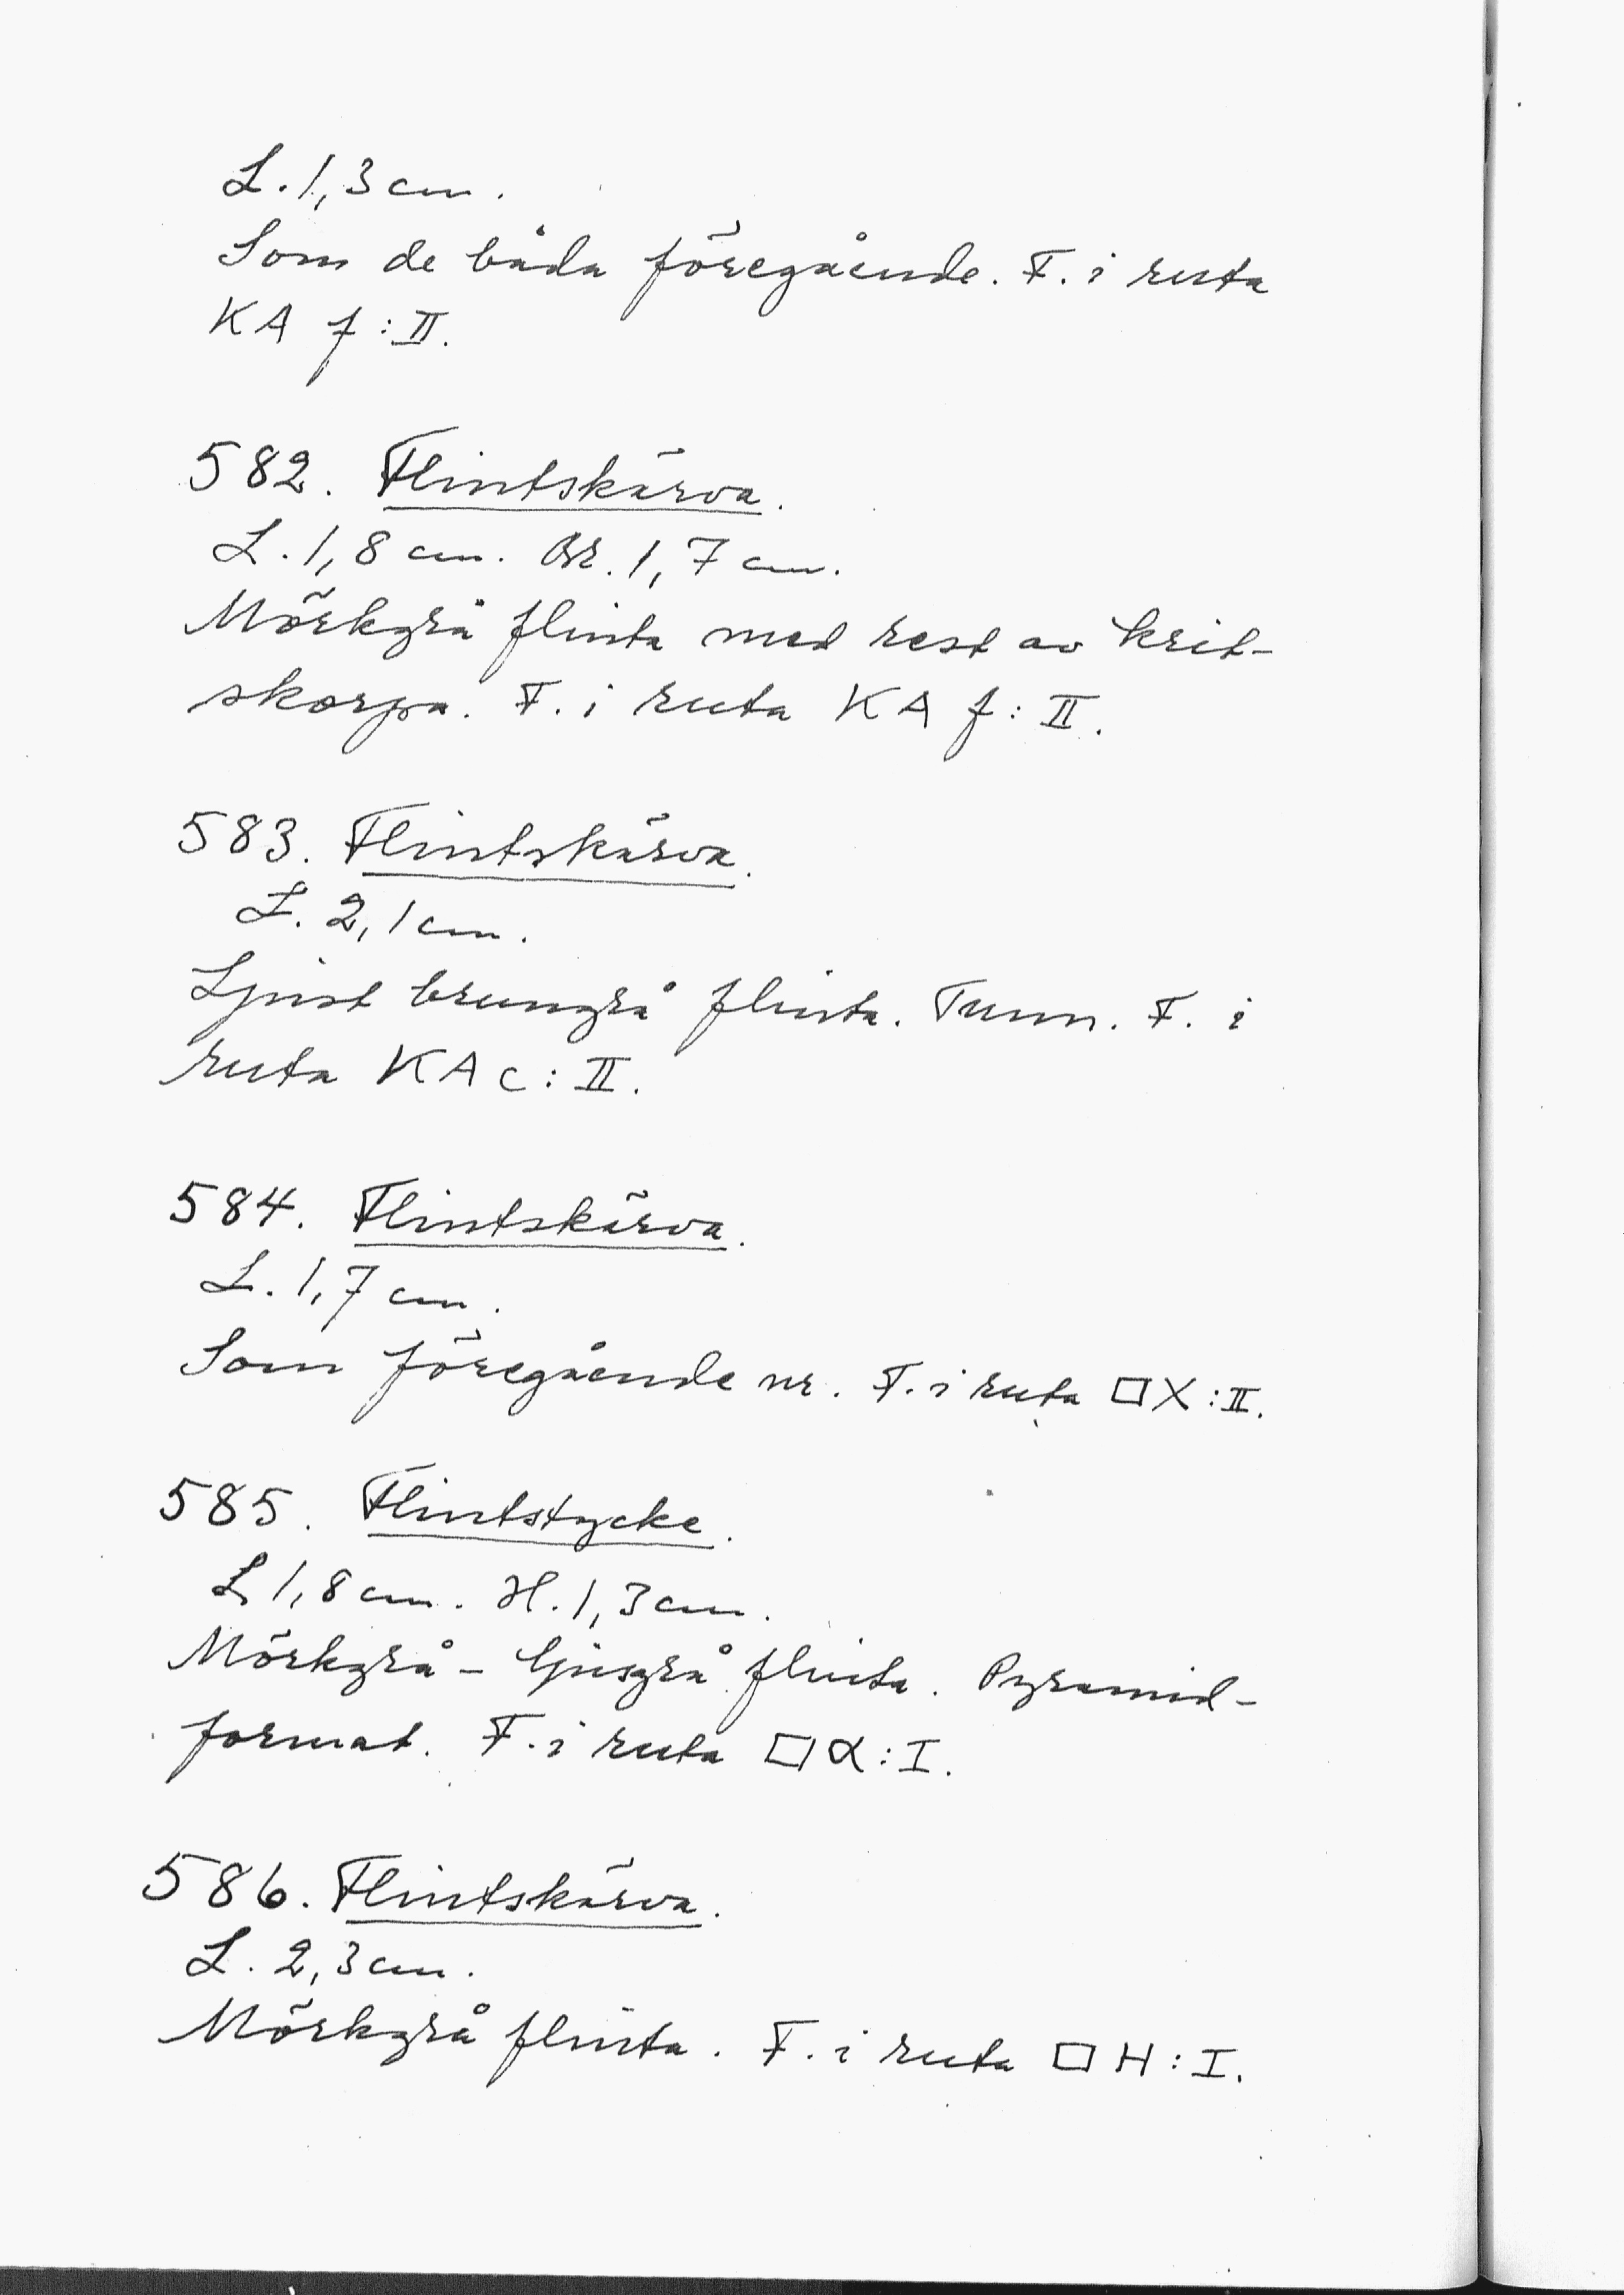 L. 1,3 cm.
Som de båda föregående. F. i ruta
KA f: II.
582. Flintskärva.
L. 1,8 cm. Br. 1,7 cm.
Mörkgrå flinta med rest av krit-
skorpa. F. i ruta KA f: II.
583. Flintskärva.
L. 2,1 cm.
Ljust brungrå flinta. Tunn. F. i
ruta KA c: II.
584. Flintskärva.
L. 1,7 cm.
Som föregående nr. F. i ruta □ X: II.
585. Flintstycke.
L 1,8 cm. H. 1,3 cm.
Mörkgrå - ljusgrå flinta. Pyramid-
format. F. i ruta □ α: I.
586. Flintskärva.
L. 2,3 cm.
Mörkgrå flinta. F. i ruta □ H: I.